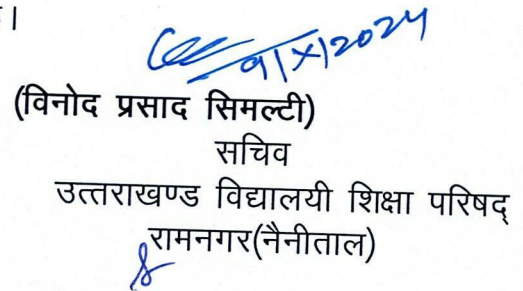 ।
9/X/2024
(विनोद प्रसाद सिमल्टी)
सचिव
उत्तराखण्ड विद्यालयी शिक्षा परिषद्
रामनगर(नैनीताल)